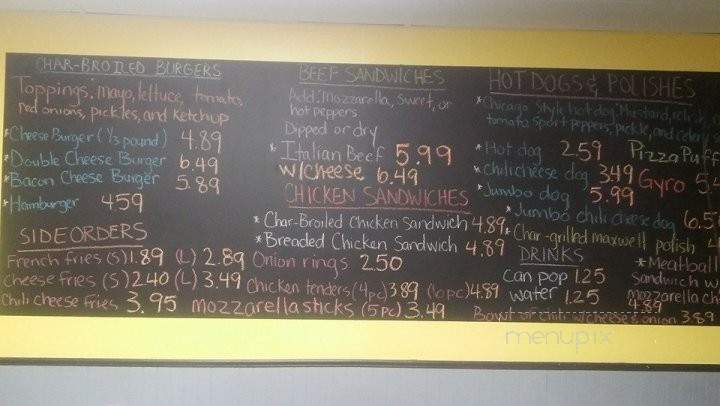 CHAR-BROILED BURGERS
Toppings: mayo, lettuce, tomato,
red onions, pickles, and ketchup
*Cheese Burger (1/3 pound) 4.89
*Double Cheese Burger 6.49
*Bacon Cheese Burger 5.89
*Hamburger 459
SIDE ORDERS
French fries (S) 1.89 (L) 2.89
Cheese fries (S) 240 (L) 3.49
Chili cheese fries 3.95
BEEF SANDWICHES
Add: Mozzarella, sweet, or
hot peppers
Dipped or dry
* Italian Beef 5.99
w/cheese 6.49
CHICKEN SANDWICHES
* Char-Broiled Chicken Sandwich 4.89
* Breaded Chicken Sandwich 4.89
Onion rings 250
Chicken tenders (4pc) 389 (10pc) 489
Mozzarella sticks (5pc) 3.49
HOT DOGS & POLISHES
*Chicago Style hot dog: Mustard, relish,
tomato, sport peppers, pickle, and celery
*Hot dog 2.59
*chili cheese dog 349
*Jumbo dog 5.99
*Jumbo chili cheese dog 6.5
*Char-grilled maxwell polish
Pizza Puff
Gyro
DRINKS
Can pop 1.25
water 1.25
*Meatball
Sandwich w
mozzarella ch
4.89
Bowl of chili w/cheese & onion 3.89
menupix